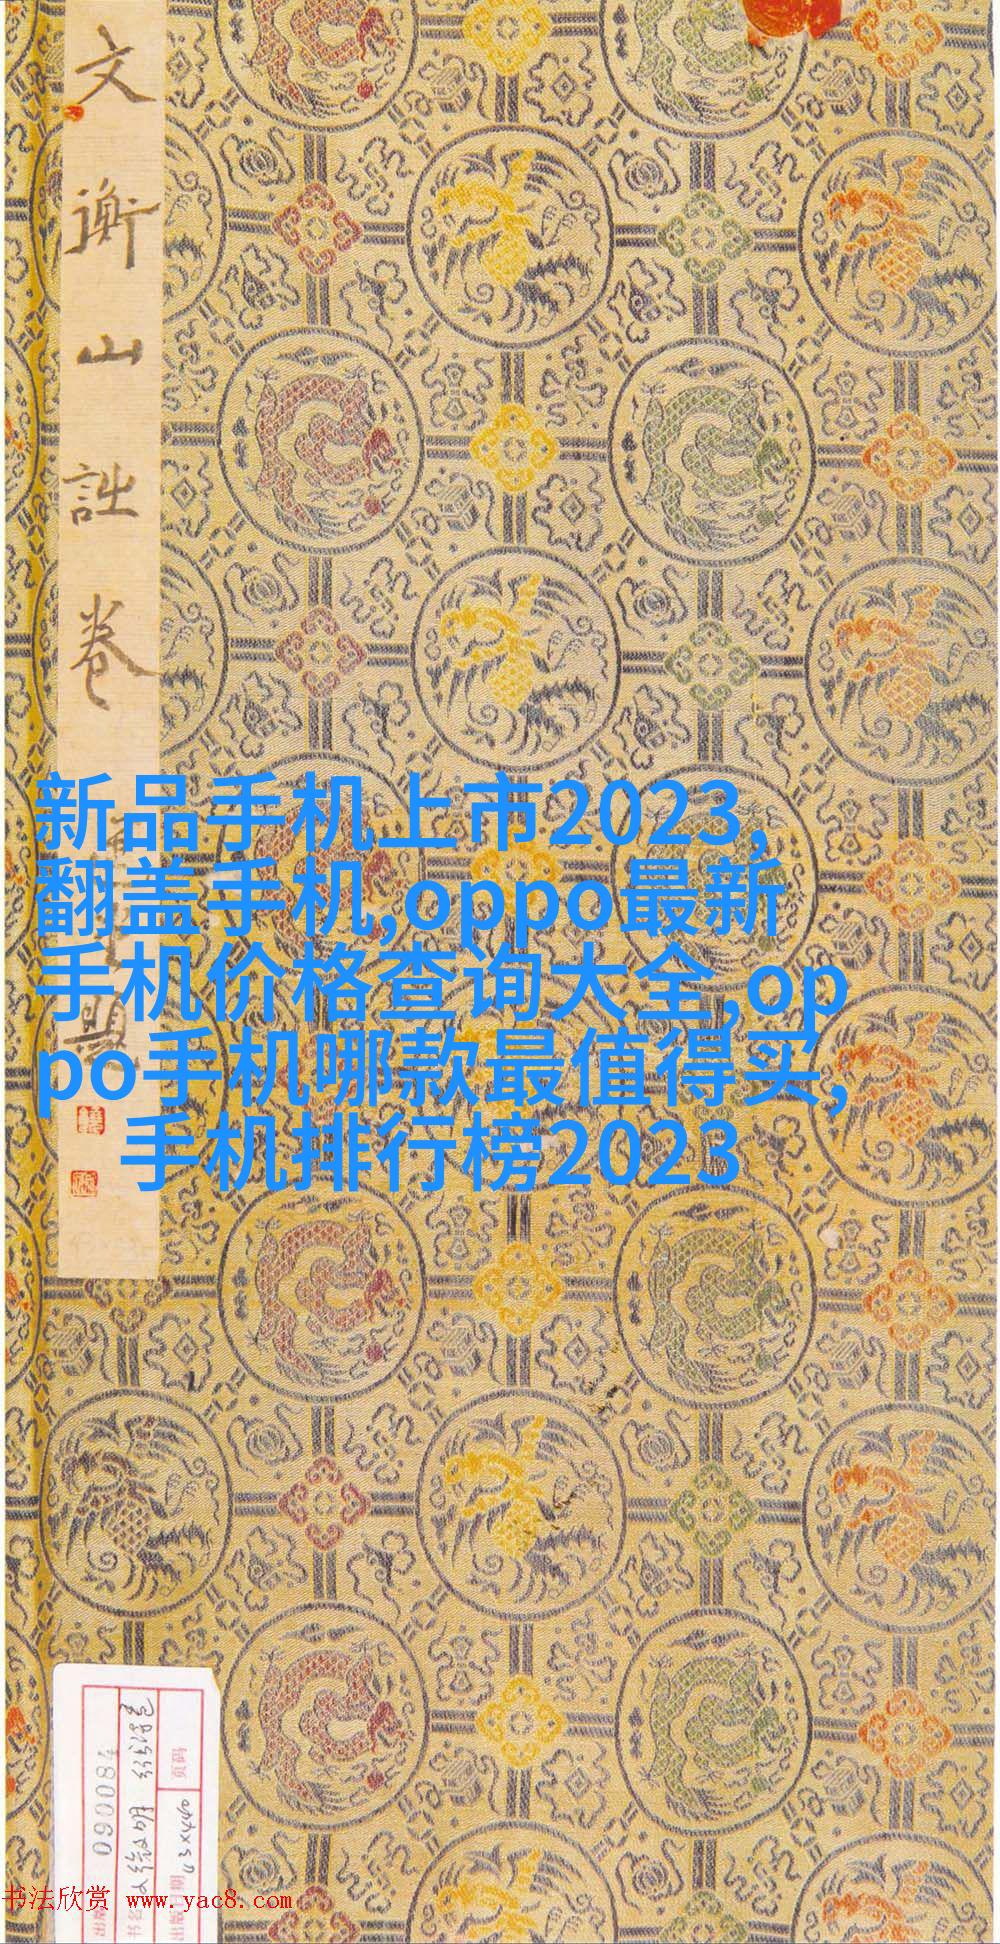 文衡山詩卷
新品手机上市2023,
翻盖手机,oppo最新
手机价格查询大全,op
po手机哪款最值得买,
手机排行榜2023
090084
页码
43x440
书法欣赏 www.yac8.com